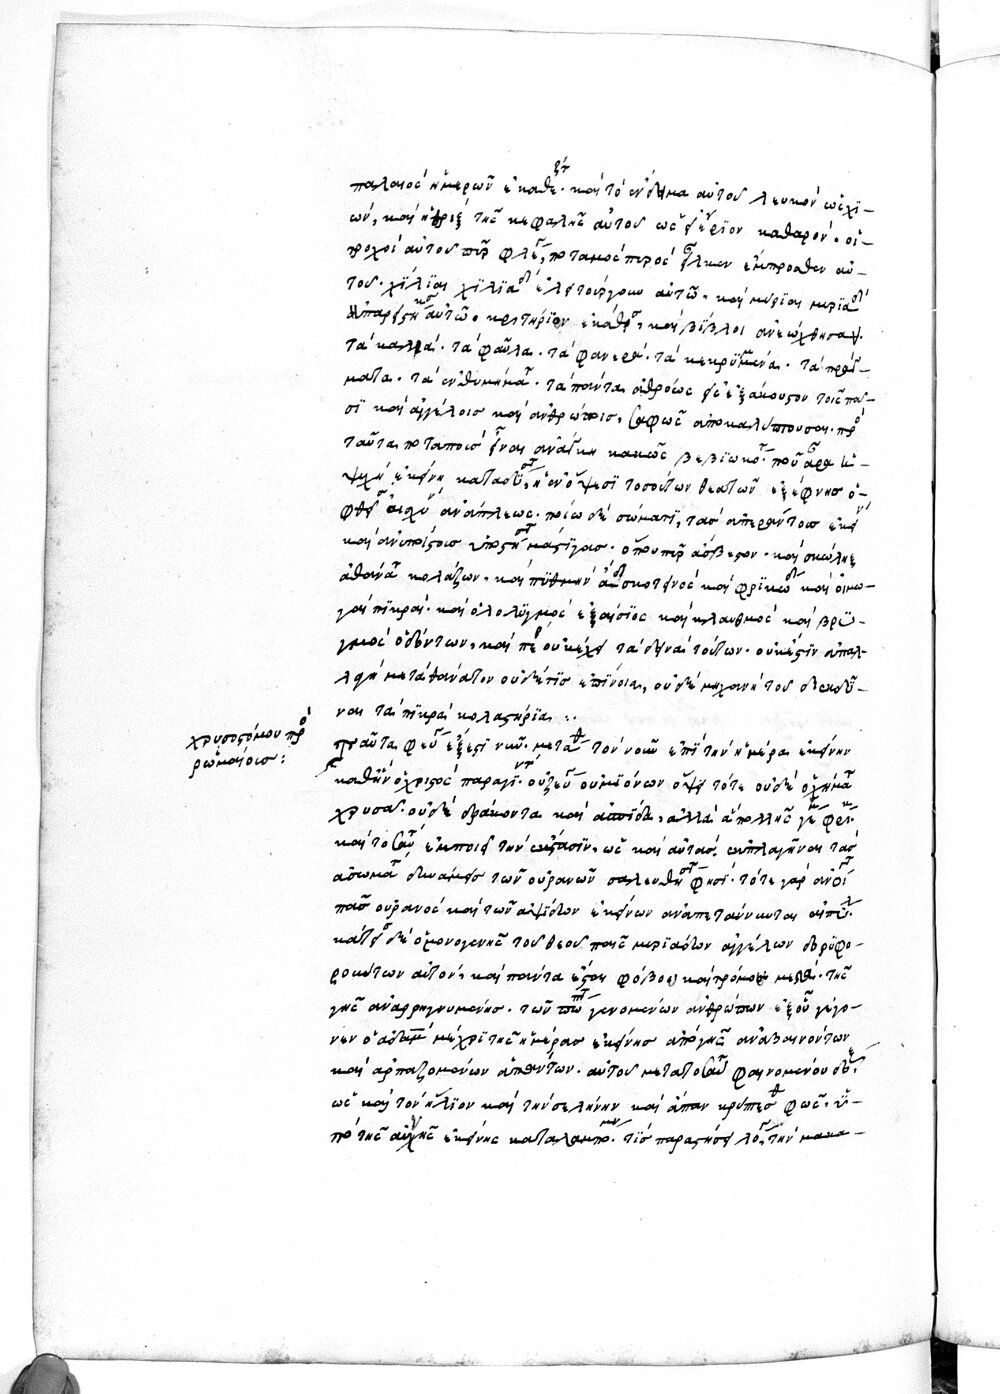 παλαιὸς ἡμερῶν ἐκαθέζετο· καὶ τὸ ἔνδυμα αὐτοῦ λευκὸν ὡς χϊ-
ών, καὶ ἡ θρὶξ τῆς κεφαλῆς αὐτοῦ ὡς ἔριον καθαρόν· οἱ
τροχοὶ αὐτοῦ πῦρ φλέγον, ποταμὸς πυρὸς εἷλκεν ἔμπροσθεν αὐ-
τοῦ· χίλιαι χϊλϊάδες ἐλειτούργουν αὐτῷ, καὶ μύριαι μυριάδες
παρειστήκεισαν αὐτῷ· κριτήριον ἐκάθισε, καὶ βίβλοι ἀνεώχθησαν·
τὰ καλὰ· τὰ φαῦλα· τὰ φανερὰ· τὰ κεκρυμμένα· τὰ πράγ-
ματα· τὰ ἐνθυμήματα· τὰ πάντα ἀθρόως εἰς ἐξάκουστον τοῖς πᾶ-
σϊ καὶ ἀγγέλοις καὶ ἀνθρώποις, σαφῶς ἀποκαλύπτουσαι· πρὸς
ταῦτα ποταποὺς εἶναι ἀνάγκη κακῶς βεβιωκότας· ποῦ ἄρα ἡ
ψυχὴ ἐκείνη καταδύσεται, ἡ ἐν ὄψεσϊ τοσούτων θεατῶν ἐξέφνης ὀ-
φθεῖσα αἰσχύνης ἀνάπλεως· ποίω δὲ σώματϊ, τὰς ἀπεράντους ἐκείνας
καὶ ἀνυποίστους ὑποστήσεται μάστιγας· ὅπου πῦρ ἄσβεστον· καὶ σκώληξ
ἀθάνατα κολάζων, καὶ πυθμὴν ᾅδου σκοτεινὸς καὶ φρϊκώδης καὶ οἰμω-
γαὶ πϊκραὶ· καὶ ὀλολϋγμὸς ἐξαίσϊος καὶ κλαυθμὸς καὶ βρϋ-
γμὸς ὀδόντων, καὶ πέρας οὐκ ἔχει τὰ δεινὰ τούτων· οὐκ ἔστϊν ἀπαλ-
λγὴ μετὰ θάνατον οὐδέ τϊς ἐπίνοια, οὐδὲ μηχανὴ τοῦ διεκδῦ-
ναι τὰ πϊκρὰ κολαστήρϊα
χρυσοστόμου πρὸς
ῥωμαίοις:
ταῦτα φεύγειν ἔξεστϊ νῦν· μετάθες τὸν νοῦν ἐπὶ τὴν ἡμέραν ἐκείνην
καθ' ἣν ὁ χριστὸς παραγίνεται· οὐ ζεῦγος ἡμϊόνων ὄψει τότε οὐδὲ ὀχήματα
χρυσᾶ· οὐδὲ δράκοντας καὶ ἀσπίδας, ἀλλὰ ἃ πολλῆς γέμει φρίκης
καὶ τοσαύτην ἐμποιεῖ τὴν ἔκστασϊν, ὡς καὶ αὐτὰς ἐκπλαγῆναι τὰς
ἀσωμάτους δυνάμεις τῶν οὐρανῶν σαλευθήσεται φησϊ· τότε γὰρ ἀνοίγεται
πᾶς οὐρανὸς καὶ τῶν ἁψίδων ἐκείνων ἀναπετάννυνται αἱ πύλαι·
κάτεισι δὲ ὁ μονογενὴς τοῦ θεοῦ παῖς μυριάδων ἀγγέλων δορυφο-
ρούντων αὐτὸν, καὶ πάντα ἔσται φόβου καὶ τρόμου μεστά· τῆς
γῆς ἀναρρηγνυμένης· τῶν πώποτε γενομένων ἀνθρώπων ἐξ οὗ γέγο-
νεν ὁ ἀδὰμ μέχρϊ τῆς ἡμέρας ἐκείνης ἀπὸ γῆς ἀναβαινόντων
καὶ ἁρπαζομένων ἁπάντων· αὐτοῦ μετὰ τοσαύτης φαινομένου δόξης
ὡς καὶ τὸν ἥλϊον καὶ τὴν σελήνην καὶ ἅπαν κρύπτεσθαι φῶς, ὑ-
πὸ τῆς αὐγῆς ἐκείνης καταλαμπόμενον· τίς παραστήσει λόγος, τὴν μακα-